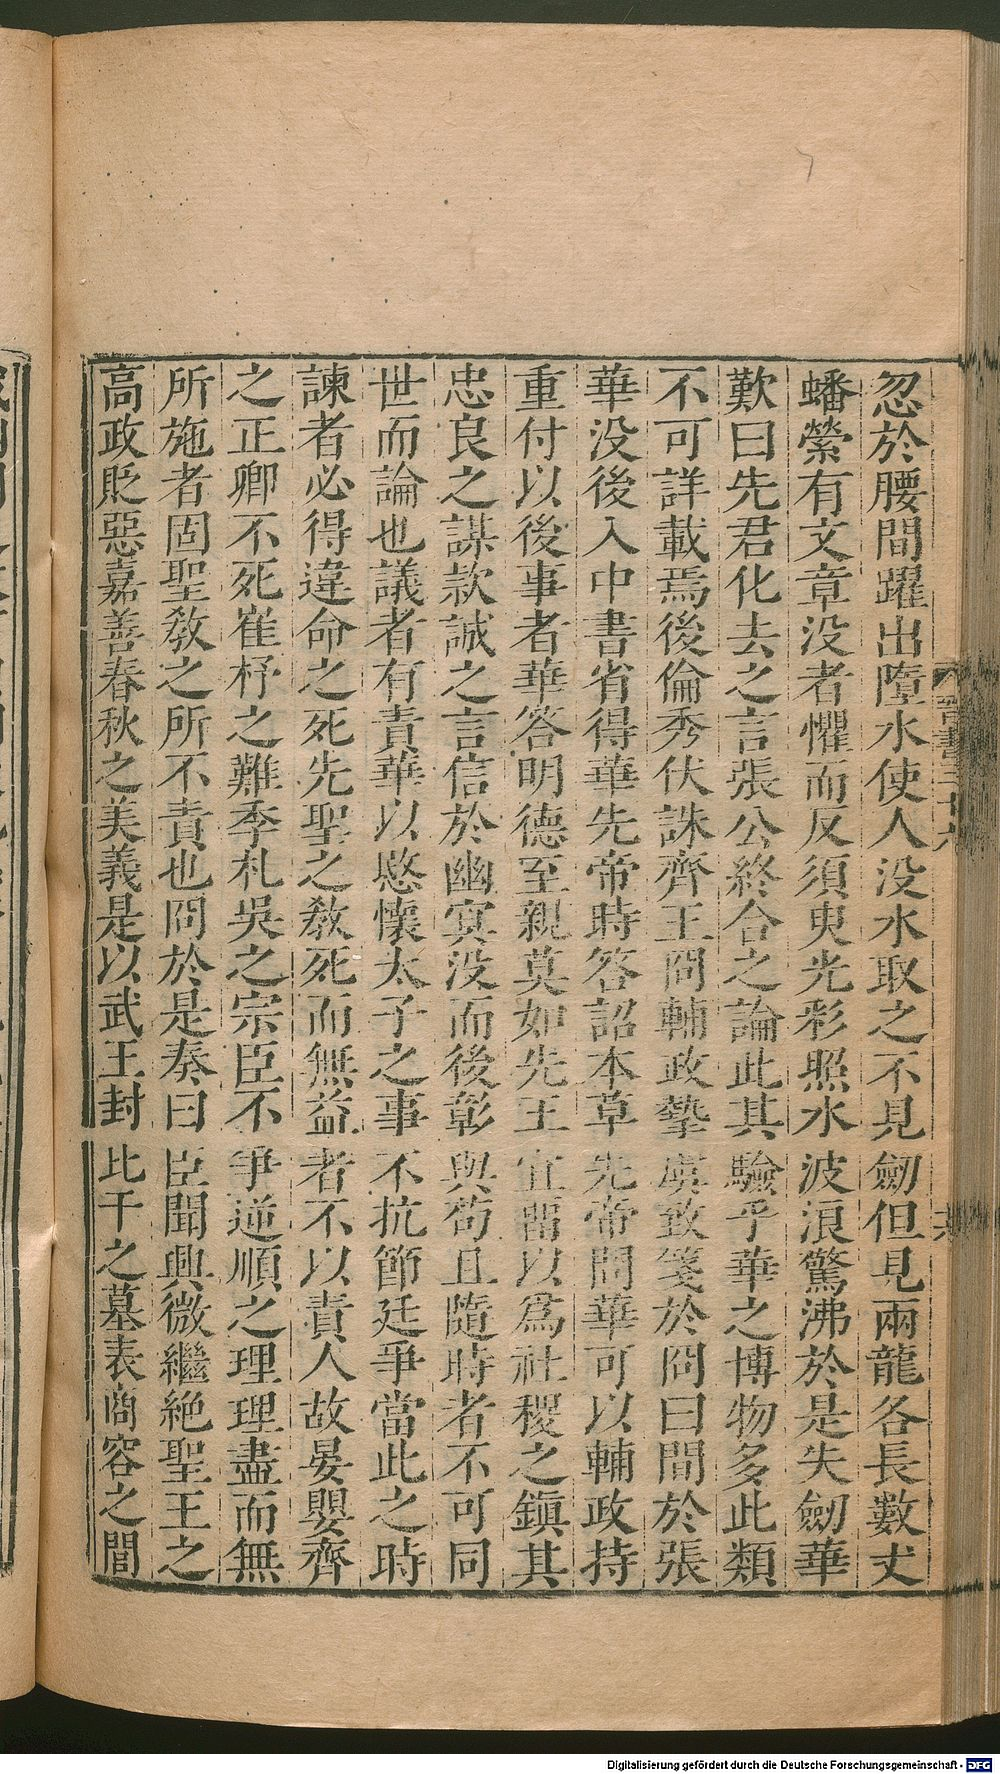 忽於腰間躍出墮水使人没水取之不見劒但見兩龍各長數丈
蟠縈有文章没者懼而反須臾光彩照水波浪驚沸於是失劒華
歎曰先君化去之言張公終合之論此其驗乎華之博物多此類
不可詳載焉後倫秀伏誅齊王冏輔政摯虞致箋於冏曰間於張
華没後入中書省得華先帝時答詔本草先帝問華可以輔政持
重付以後事者華答明德至親莫如先王宜畱以爲社稷之鎮其
忠良之謀款誠之言信於幽冥没而後彰與苟且隨時者不可同
世而論也議者有責華以愍懷太子之事不抗節廷爭當此之時
諫者必得違命之死先聖之敎死而無益者不以責人故晏嬰齊
之正卿不死崔杼之難季札吳之宗臣不爭逆順之理理盡而無
所施者固聖敎之所不責也冏於是奏曰臣聞興微繼絶聖王之
高政貶惡嘉善春秋之美義是以武王封比干之墓表商容之閭
Digitalisierung gefördert durch die Deutsche Forschungsgemeinschaft - DFG